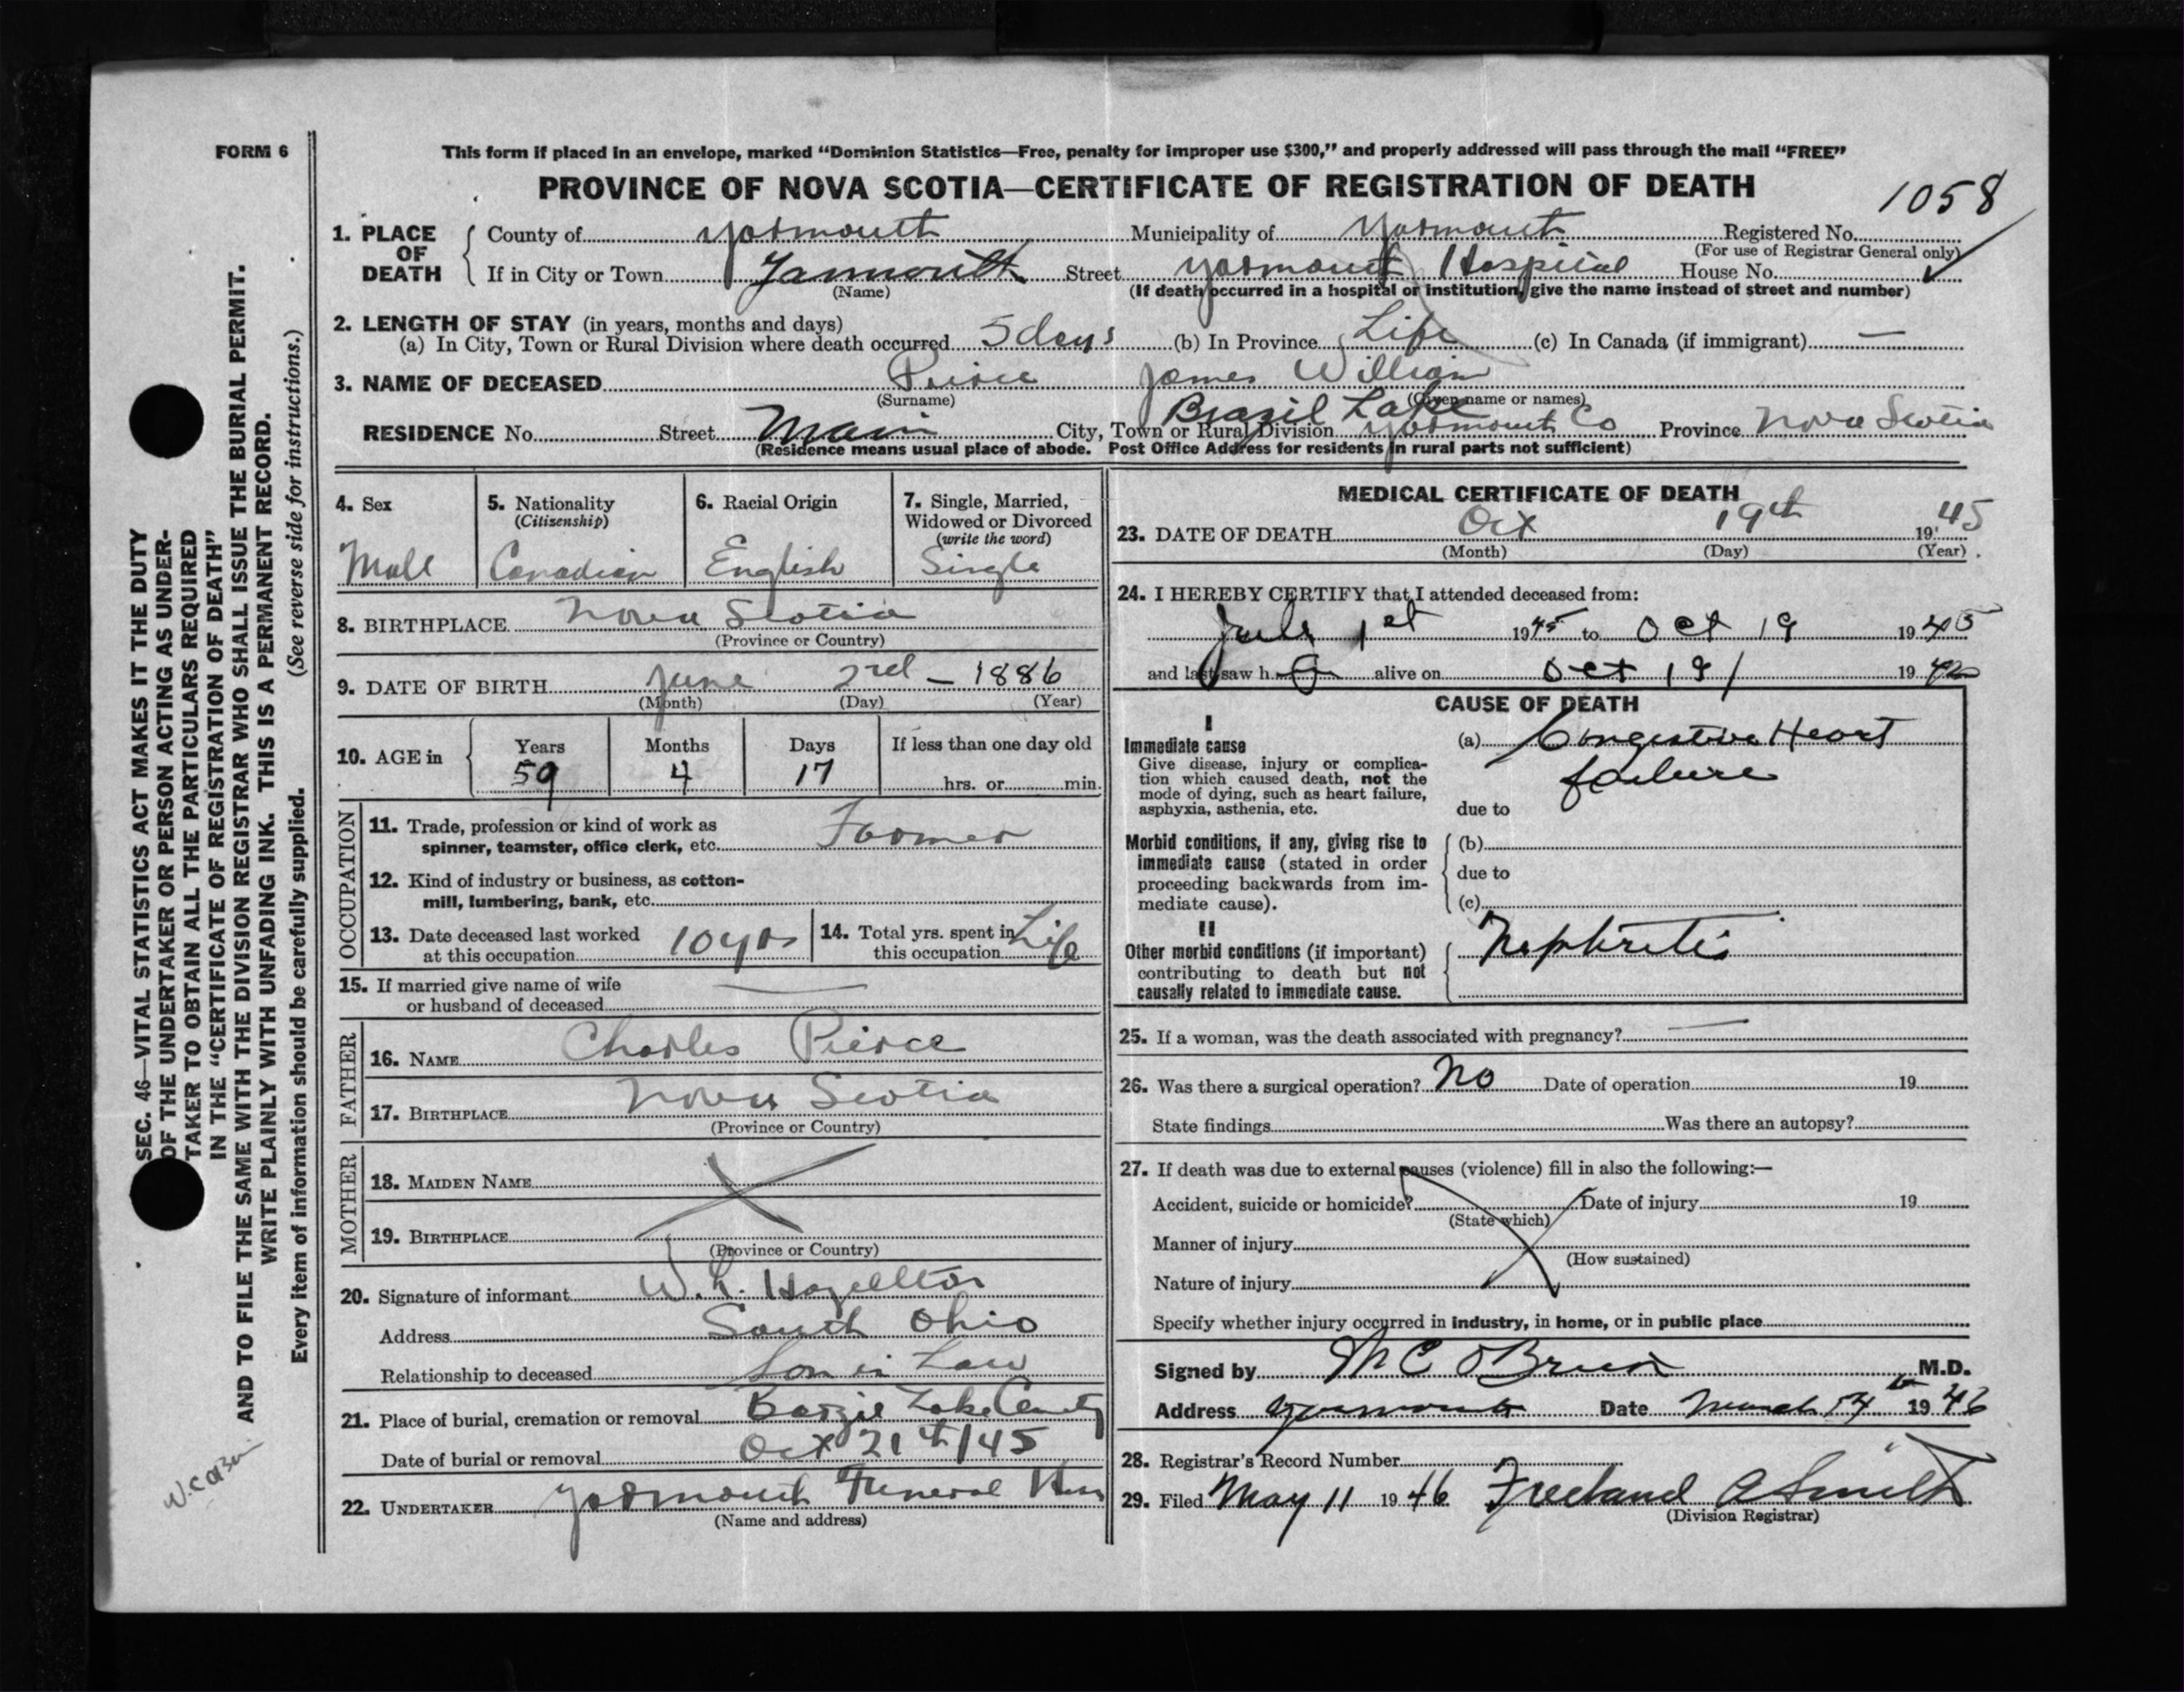 FORM 6
This form if placed in an envelope, marked “Dominion Statistics—Free, penalty for improper use $300,” and properly addressed will pass through the mail “FREE”
PROVINCE OF NOVA SCOTIA—CERTIFICATE OF REGISTRATION OF DEATH
1058
1. PLACE OF DEATH County of Yarmouth Municipality of Yarmouth Registered No.
(For use of Registrar General only)
If in City or Town Yarmouth Street Yarmouth Hospital House No.
(Name) (If death occurred in a hospital or institution, give the name instead of street and number)
2. LENGTH OF STAY (in years, months and days)
(a) In City, Town or Rural Division where death occurred 5 days (b) In Province Life (c) In Canada (if immigrant) —
3. NAME OF DECEASED Peirce James William
(Surname) (Given name or names)
Brazil Lake
RESIDENCE No. Street Main City, Town or Rural Division Yarmouth Co Province Nova Scotia
(Residence means usual place of abode. Post Office Address for residents in rural parts not sufficient)
4. Sex
Male
5. Nationality
(Citizenship)
Canadian
6. Racial Origin
English
7. Single, Married,
Widowed or Divorced
(write the word)
Single
8. BIRTHPLACE Nova Scotia
(Province or Country)
9. DATE OF BIRTH June 2nd — 1886
(Month) (Day) (Year)
10. AGE in Years Months Days If less than one day old
59 4 17 hrs. or min.
OCCUPATION
11. Trade, profession or kind of work as
spinner, teamster, office clerk, etc. Farmer
12. Kind of industry or business, as cotton-
mill, lumbering, bank, etc.
13. Date deceased last worked
at this occupation 10 yrs
14. Total yrs. spent in
this occupation Life
15. If married give name of wife
or husband of deceased —
FATHER
16. NAME Charles Pierce
17. BIRTHPLACE Nova Scotia
(Province or Country)
MOTHER
18. MAIDEN NAME
19. BIRTHPLACE
(Province or Country)
20. Signature of informant W. L. Hazellton
Address South Ohio
Relationship to deceased Son in Law
21. Place of burial, cremation or removal Barzil Lake
Date of burial or removal Oct 21th/45
22. UNDERTAKER Yarmouth Funeral
(Name and address)
MEDICAL CERTIFICATE OF DEATH
23. DATE OF DEATH Oct 19th 1945
(Month) (Day) (Year)
24. I HEREBY CERTIFY that I attended deceased from:
July 1st 1945 to Oct 19 1945
and last saw h alive on Oct 19/ 19
CAUSE OF DEATH
I
Immediate cause
Give disease, injury or complica-
tion which caused death, not the
mode of dying, such as heart failure,
asphyxia, asthenia, etc.
(a) Congestive Heart
failure
due to
Morbid conditions, if any, giving rise to
immediate cause (stated in order
proceeding backwards from im-
mediate cause).
(b)
due to
(c)
II
Other morbid conditions (if important)
contributing to death but not
causally related to immediate cause.
Nephritis
25. If a woman, was the death associated with pregnancy? —
26. Was there a surgical operation? No Date of operation 19
State findings Was there an autopsy?
27. If death was due to external causes (violence) fill in also the following:—
Accident, suicide or homicide? Date of injury 19
(State which)
Manner of injury
(How sustained)
Nature of injury
Specify whether injury occurred in industry, in home, or in public place
Signed by O'Brien M.D.
Address Yarmouth Date March 19 46
28. Registrar's Record Number
29. Filed May 11 1946 Freeland A Smith
(Division Registrar)
SEC. 46—VITAL STATISTICS ACT MAKES IT THE DUTY
OF THE UNDERTAKER OR PERSON ACTING AS UNDER-
TAKER TO OBTAIN ALL THE PARTICULARS REQUIRED
IN THE “CERTIFICATE OF REGISTRATION OF DEATH”
AND TO FILE THE SAME WITH THE DIVISION REGISTRAR WHO SHALL ISSUE THE BURIAL PERMIT.
WRITE PLAINLY WITH UNFADING INK. THIS IS A PERMANENT RECORD.
Every item of information should be carefully supplied. (See reverse side for instructions.)